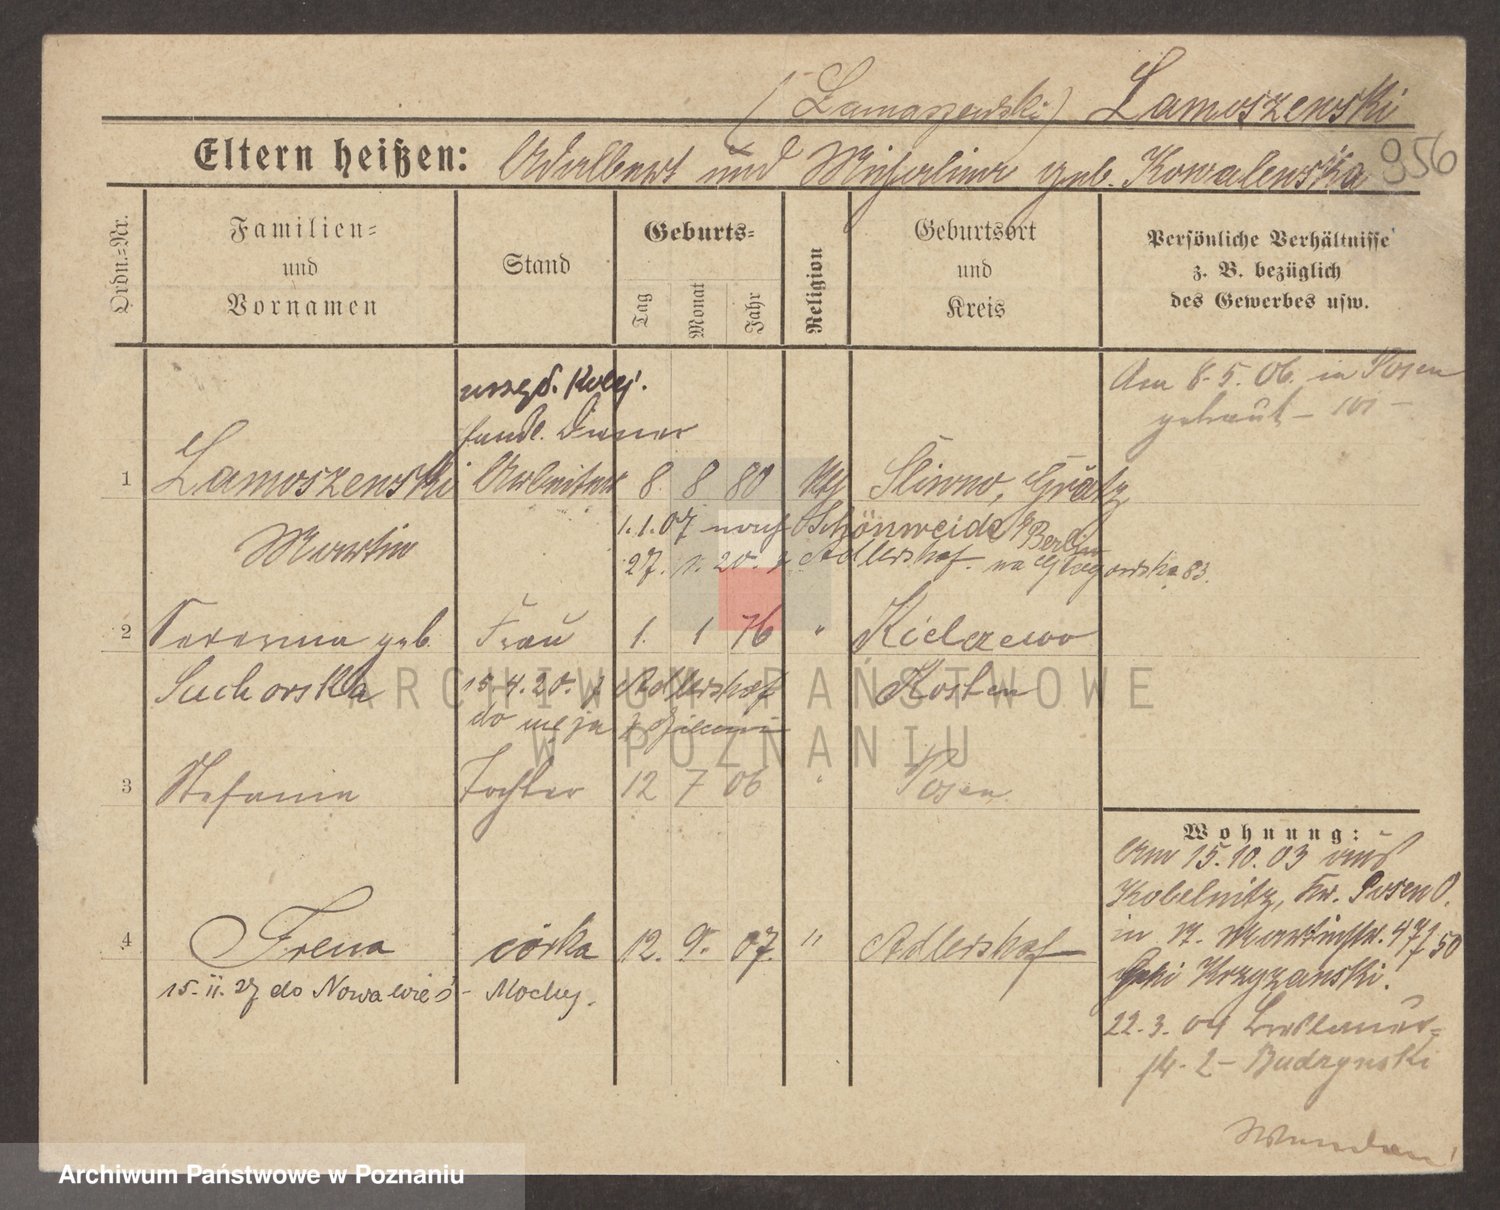 (Lamoszewski) Lamoszewski
Eltern heißen: Adalbert und Michalina geb. Kowalewska
956
Ordn.-Nr.
Familien- und Vornamen
Stand
Geburts-
Tag
Monat
Jahr
Religion
Geburtsort und Kreis
Persönliche Verhältnisse z. B. bezüglich des Gewerbes usw.
Am 8.5.06. in Posen
getraut
urzęd. Kolej.
Diener
1 Lamoszewski Arbeiter 8. 8 80 kth Sliwno, Grätz
Martin
1.1.07 nach Schönweide b/Berlin
27. 20. z Adlershof. na Głogowska 83.
2 geb. Frau 1. 1 76 " Kielczewo
Suchorska
15.4.20. z Adlershof
Kosten
do męża
3 Stefania Tochter 12 7 06 " Posen
Wohnung:
Am 15.10.03 aus
Kobelnitz, Kr. Posen O.
in n. Martinstr. 47/50
bei Krzyzanski.
4 Irena córka 12. 9. 07. " Adlershof
15.II.27 do Nowawieś - Mochy.
22.3.04 Breslauer-
str. 2 - Budzynski
ARCHIWUM PAŃSTWOWE
W POZNANIU
Archiwum Państwowe w Poznaniu